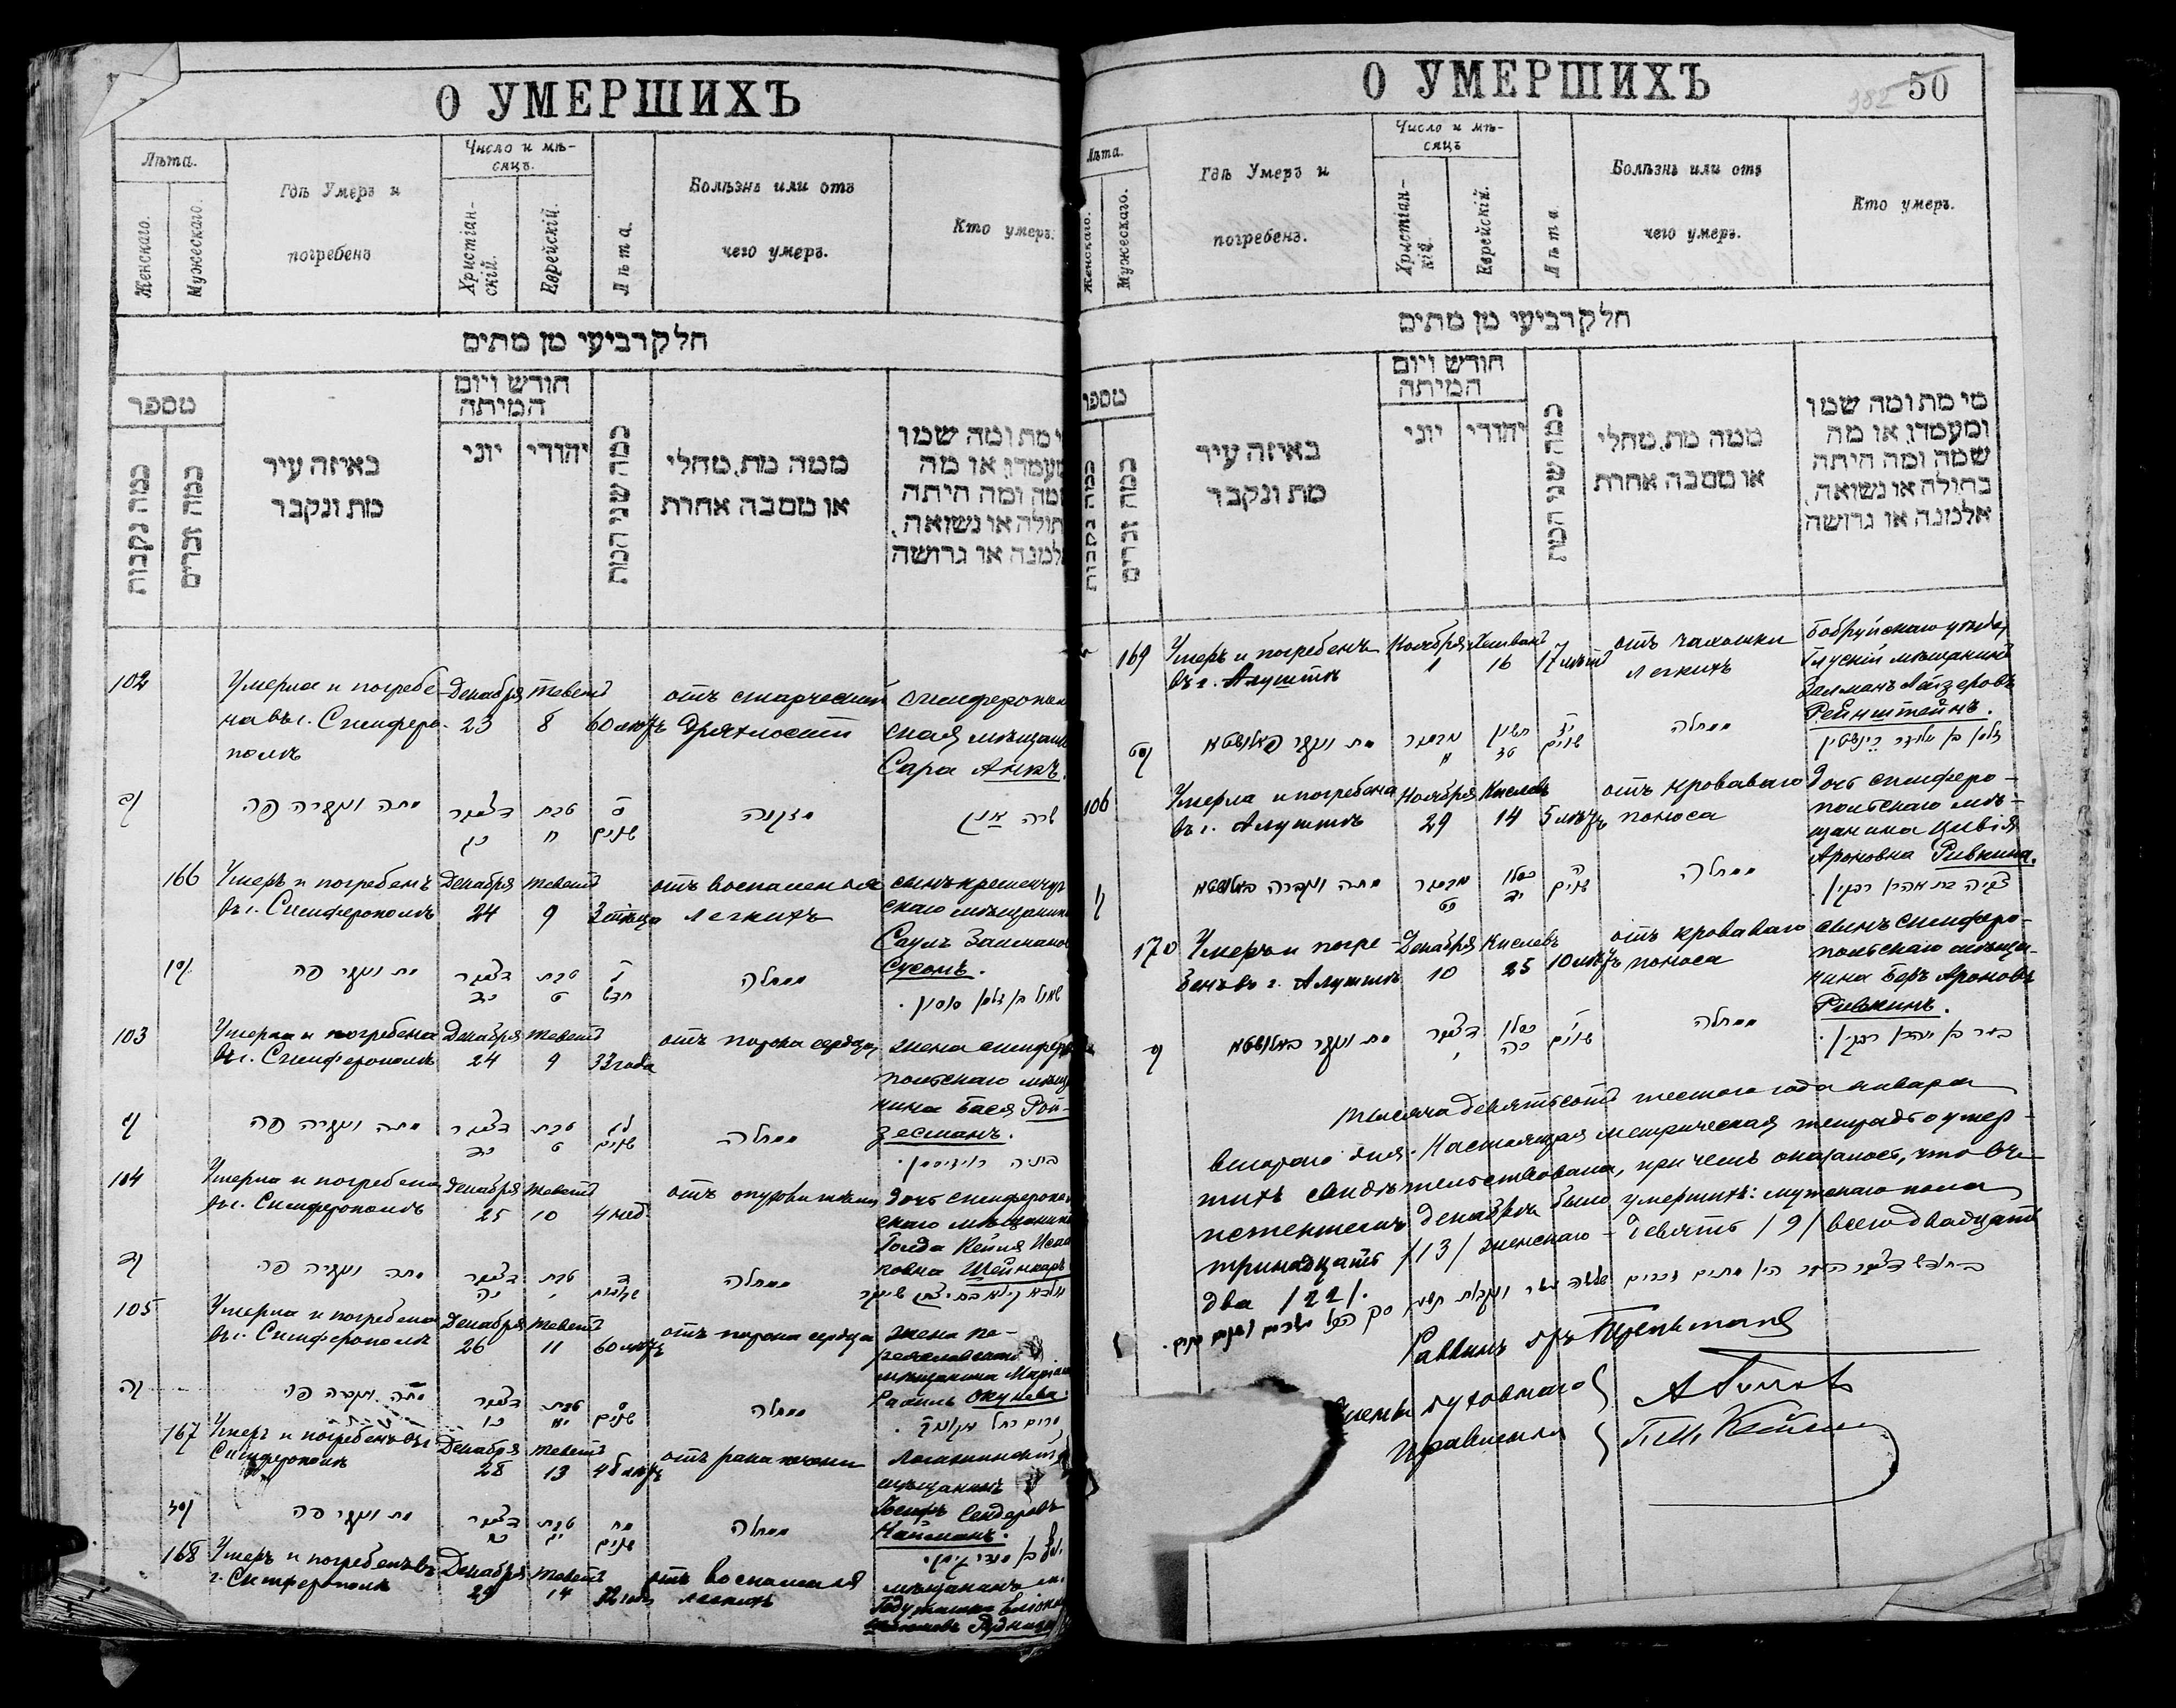 О УМЕРШИХЪ
Лѣта.
Женскаго.
Мужескаго.
Гдѣ Умеръ и
погребенъ
Число и мѣ-
сяцъ.
Христіан-
скій.
Еврейскій.
Лѣта.
Болѣзнь или отъ
чего умеръ.
Кто умеръ.
חלק רביעי מן מתים
מספר
כמה נקבות
כמה זכרים
באיזה עיר
מת ונקבר
חודש ויום
המיתה
יוני
יהודי
כמה שני המת
ממה מת, מחלי
או מסבה אחרת
י מת ומה שמו
מעמדו, או מה
מה ומה היתה
תולה או נשואה,
למנה או גרושה
102
Умерла и погребе-
на въ г. Симферо-
полѣ
Декабря
23
Теветъ
8
60 лѣтъ
отъ старческой
дряхлости
Симферополь
ская мѣщан
Сара Анкъ.
מתה ונקברה פה
דצמבר
כג
טבת
ח
ס
שנים
מזקנה
שרה אנק
166
Умеръ и погребенъ
въ г. Симферополѣ
Декабря
24
Теветъ
9
3 мѣсяца
отъ воспаленія
легкихъ
сынъ кременчуг
скаго мѣщанина
Саулъ Залманов
Сусонъ.
מת ונקבר פה
דצמבר
כד
טבת
ט
ג
חדש
ממחלה
שאול בן זלמן סוסון.
103
Умерла и погребена
въ г. Симферополѣ
Декабря
24
Теветъ
9
33 года
отъ порока сердца
жена симферо
польскаго мѣща
нина Бася Рой-
зесманъ.
מתה ונקברה פה
דצמבר
כד
טבת
ט
לג
שנים
ממחלה
104
Умерла и погребена
въ г. Симферополѣ
Декабря
25
Теветъ
10
4 нед.
дочь симферополь
скаго мѣщанина
Голда Кейля Исаа
ковна Шейнкаръ
מתה ונקברה פה
דצמבר
כה
טבת
י
ד
שבועות
ממחלה
105
Умерла и погребена
въ г. Симферополѣ
Декабря
26
Теветъ
11
60 лѣтъ
отъ порока сердца
жена пе-
реяславскаго
мѣщанина Маріам
Рахиль Окунева.
מתה ונקברה פה
דצמבר
כו
טבת
יא
ס
שנים
ממחלה
מרים רחל אקונבה.
167
Умеръ и погребенъ въ г.
Симферополѣ
Декабря
28
Теветъ
13
48 лѣтъ
отъ рака печени
мѣщанинъ
Іосифъ Сендеровъ
Найманъ.
מת ונקבר פה
דצמבר
כח
טבת
יג
מח
שנים
ממחלה
168
Умеръ и погребенъ въ
г. Симферополѣ
Декабря
29
Теветъ
14
отъ воспаленія
легкихъ
мѣщанинъ м.
О УМЕРШИХЪ
382 50
Лѣта.
Женскаго.
Мужескаго.
Гдѣ Умеръ и
погребенъ.
Число и мѣ-
сяцъ
Христіан-
кій.
Еврейскій.
Лѣта
Болѣзнь или отъ
чего умеръ.
Кто умеръ.
חלק רביעי מן מתים
מספר
כמה נקבות
כמה זכרים
באיזה עיר
מת ונקבר
חודש ויום
המיתה
יוני
יהודי
כמה שני המת
ממה מת, מחלי
או מסבה אחרת
מי מת ומה שמו
ומעמדו, או מה
שמה ומה היתה
בתולה או נשואה,
אלמנה או גרושה
169
Умеръ и погребенъ
въ г. Алуштѣ
Ноября
1
Хешванъ
16
17 лѣтъ
отъ чахотки
легкихъ
Бобруйскаго уѣзда
Глускій мѣщанинъ
Залманъ Лейзеровъ
Рейнштейнъ.
מת ונקבר באלושטא
נובמבר
א
חשון
טז
יז
שנים
ממחלה
זלמן בן אליעזר ריינשטיין
106
Умерла и погребена
въ г. Алуштѣ
Ноября
29
Кислевъ
14
5 лѣтъ
отъ кроваваго
поноса
Дочь симферо-
польскаго мѣ-
щанина Цивія
Ароновна Ривкина.
מתה ונקברה באלושטא
נובמבר
כט
כסלו
יד
ה
שנים
ממחלה
צביה בת אהרן רבקין.
170
Умеръ и погре-
бенъ въ г. Алуштѣ
Декабря
10
Кислевъ
25
10 лѣтъ
отъ кроваваго
поноса
сынъ симферо-
польскаго мѣща-
нина Беръ Ароновъ
Ривкинъ.
מת ונקבר באלושטא
דצמבר
י
כסלו
כה
י
שנים
ממחלה
בער בן אהרן רבקין.
Тысяча девятьсотъ шестого года января
второго дня. Настоящая метрическая тетрадь о умер-
шихъ свидѣтельствована, при чемъ оказалось, что въ
истекшемъ декабрѣ было умершихъ: мужского пола
тринадцать /13/ женскаго – девять /9/ всего двадцать
два /22/.
Раввинъ
Члены духовнаго
правленія